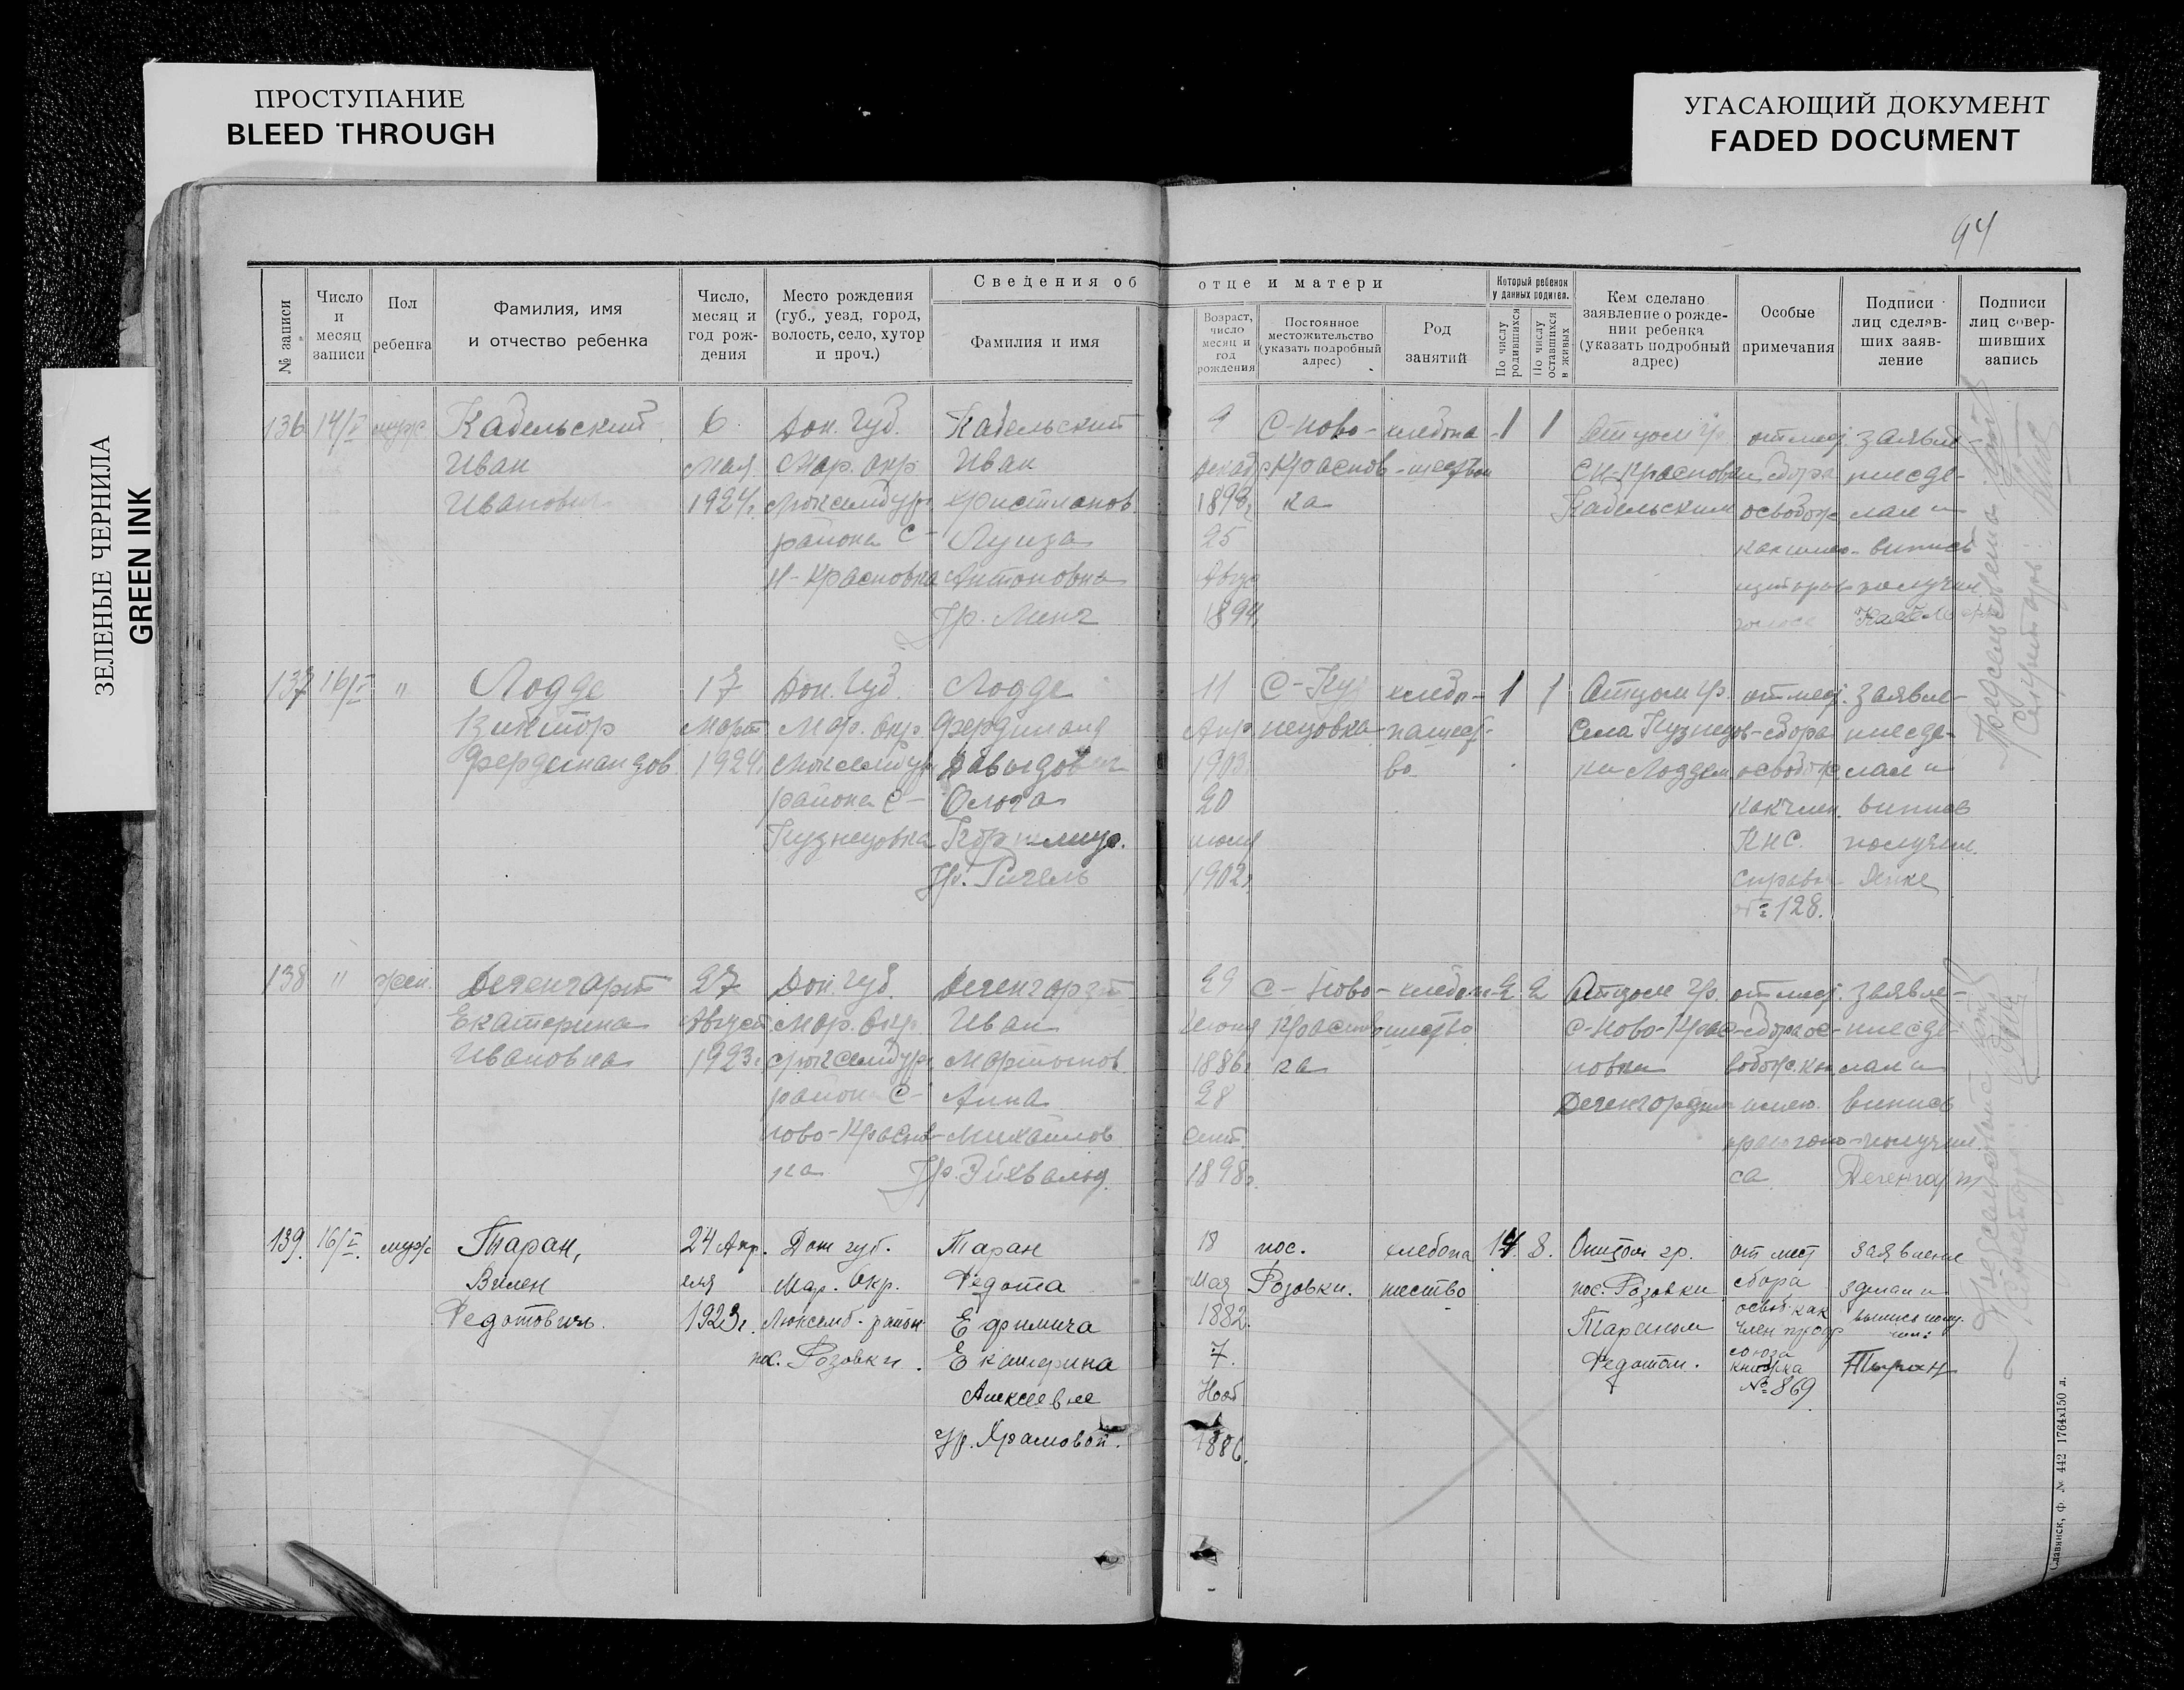 ПРОСТУПАНИЕ
BLEED THROUGH
УГАСАЮЩИЙ ДОКУМЕНТ
FADED DOCUMENT
ЗЕЛЕНЫЕ ЧЕРНИЛА
GREEN INK
94
№ записи
Число
и
месяц
записи
Пол
ребенка
Фамилия, имя
и отчество ребенка
Число,
месяц и
год рож-
дения
Место рождения
(губ., уезд, город,
волость, село, хутор
и проч.)
Сведения об отце и матери
Фамилия и имя
Возраст,
число
месяц и
год
рождения
Постоянное
местожительство
(указать подробный
адрес)
Род
занятий
Который ребенок
у данных родител.
По числу
родившихся
По числу
оставшихся
в живых
Кем сделано
заявление о рожде-
нии ребенка
(указать подробный
адрес)
Особые
примечания
Подписи
лиц сделав-
ших заяв-
ление
Подписи
лиц совер-
шивших
запись
136
14/V
муж
Кабельский
Иван
Иванович
6
Мая
1924г.
Дон. Губ.
Мар. окр.
Люксембург
района С-
Н-Красновка
Кабельский
Иван
Христианов.
Луиза
Антоновна
Ур. Менг
9
декаб
1898г
25
Август
1894г
С-Ново-
Краснов-
ка
хлебопа-
шество
1
1
Отцом гр.
С Н-Красновки
Кабельским
от мест.
сбора
освобож
заявле-
ние сде-
лал и
випись
получил
137
16/V
"
Лодде
Виктор
Фердинандов.
17
Март
1924г.
Дон. Губ.
Мар. Окр.
Люксембур
района С-
Кузнецовка
Лодде
Фердинанд
Давыдович
Ольга
Ур. Ригель
11
Апр
1903г.
20
июня
1902г.
С-Куз
нецовка
хлебо-
пашест-
во
1
1
Отцом гр.
Села Кузнецов-
ки Лоддем
от мест.
сбора
освобож
как член.
КНС.
справк
№ 128.
заявле-
ние сде-
лал и
випись
получил.
138
"
жен.
Дегенгарт
Екатерина
Ивановна
27
Август
1923г.
Дон. Губ.
Мар. Окр.
Люксембург
района С-
Ново-Краснов-
ка
Дегенгардт
Иван
Мартынов.
Анна
Михайлов.
Ур. Эйхвальд.
29
Июня
1886г.
28
Сент.
1898г.
С-Ново-
Красно
ка
хлебопа
шество
2
2
Отцом гр.
С-Ново-Крас-
новки
Дегенгардтом
от мест.
сбора ос-
вобож. как
са
заявле-
ние сде-
лал и
випись
получил.
Дегенгарт
139.
16/V.
муж
Таран,
Вилен
Федотович.
24 Апр.
еля
1923г.
Дон губ.
Мар. Окр.
Люксемб-район
пос. Розовки.
Таран
Федота
Ефимича
Екатерина
Алексеевне
Ур. Храмовой.
18
Мая
1882.
7.
Нояб
1886.
пос.
Розовки.
хлебопа
шество
14.
8.
Отцом гр.
пос. Розовки
Тараном
Федотом.
от мест
сбора
освоб. как
член проф
союза
книжка
№ 869
заявление
зделал и
выпись полу-
чил:
Таран
Славянск, ф. № 442 1764х150 л.